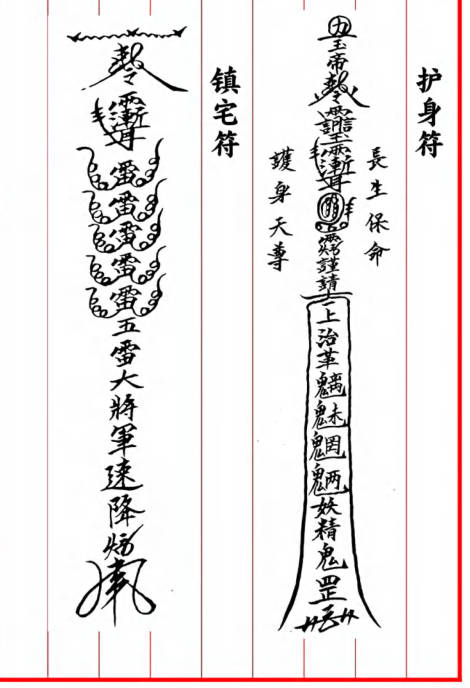 护身符
長生保命
玉帝謹請上治革魑魅魍魎妖精鬼罡
護身天尊
镇宅符
雷雷雷雷雷五雷大將軍速降